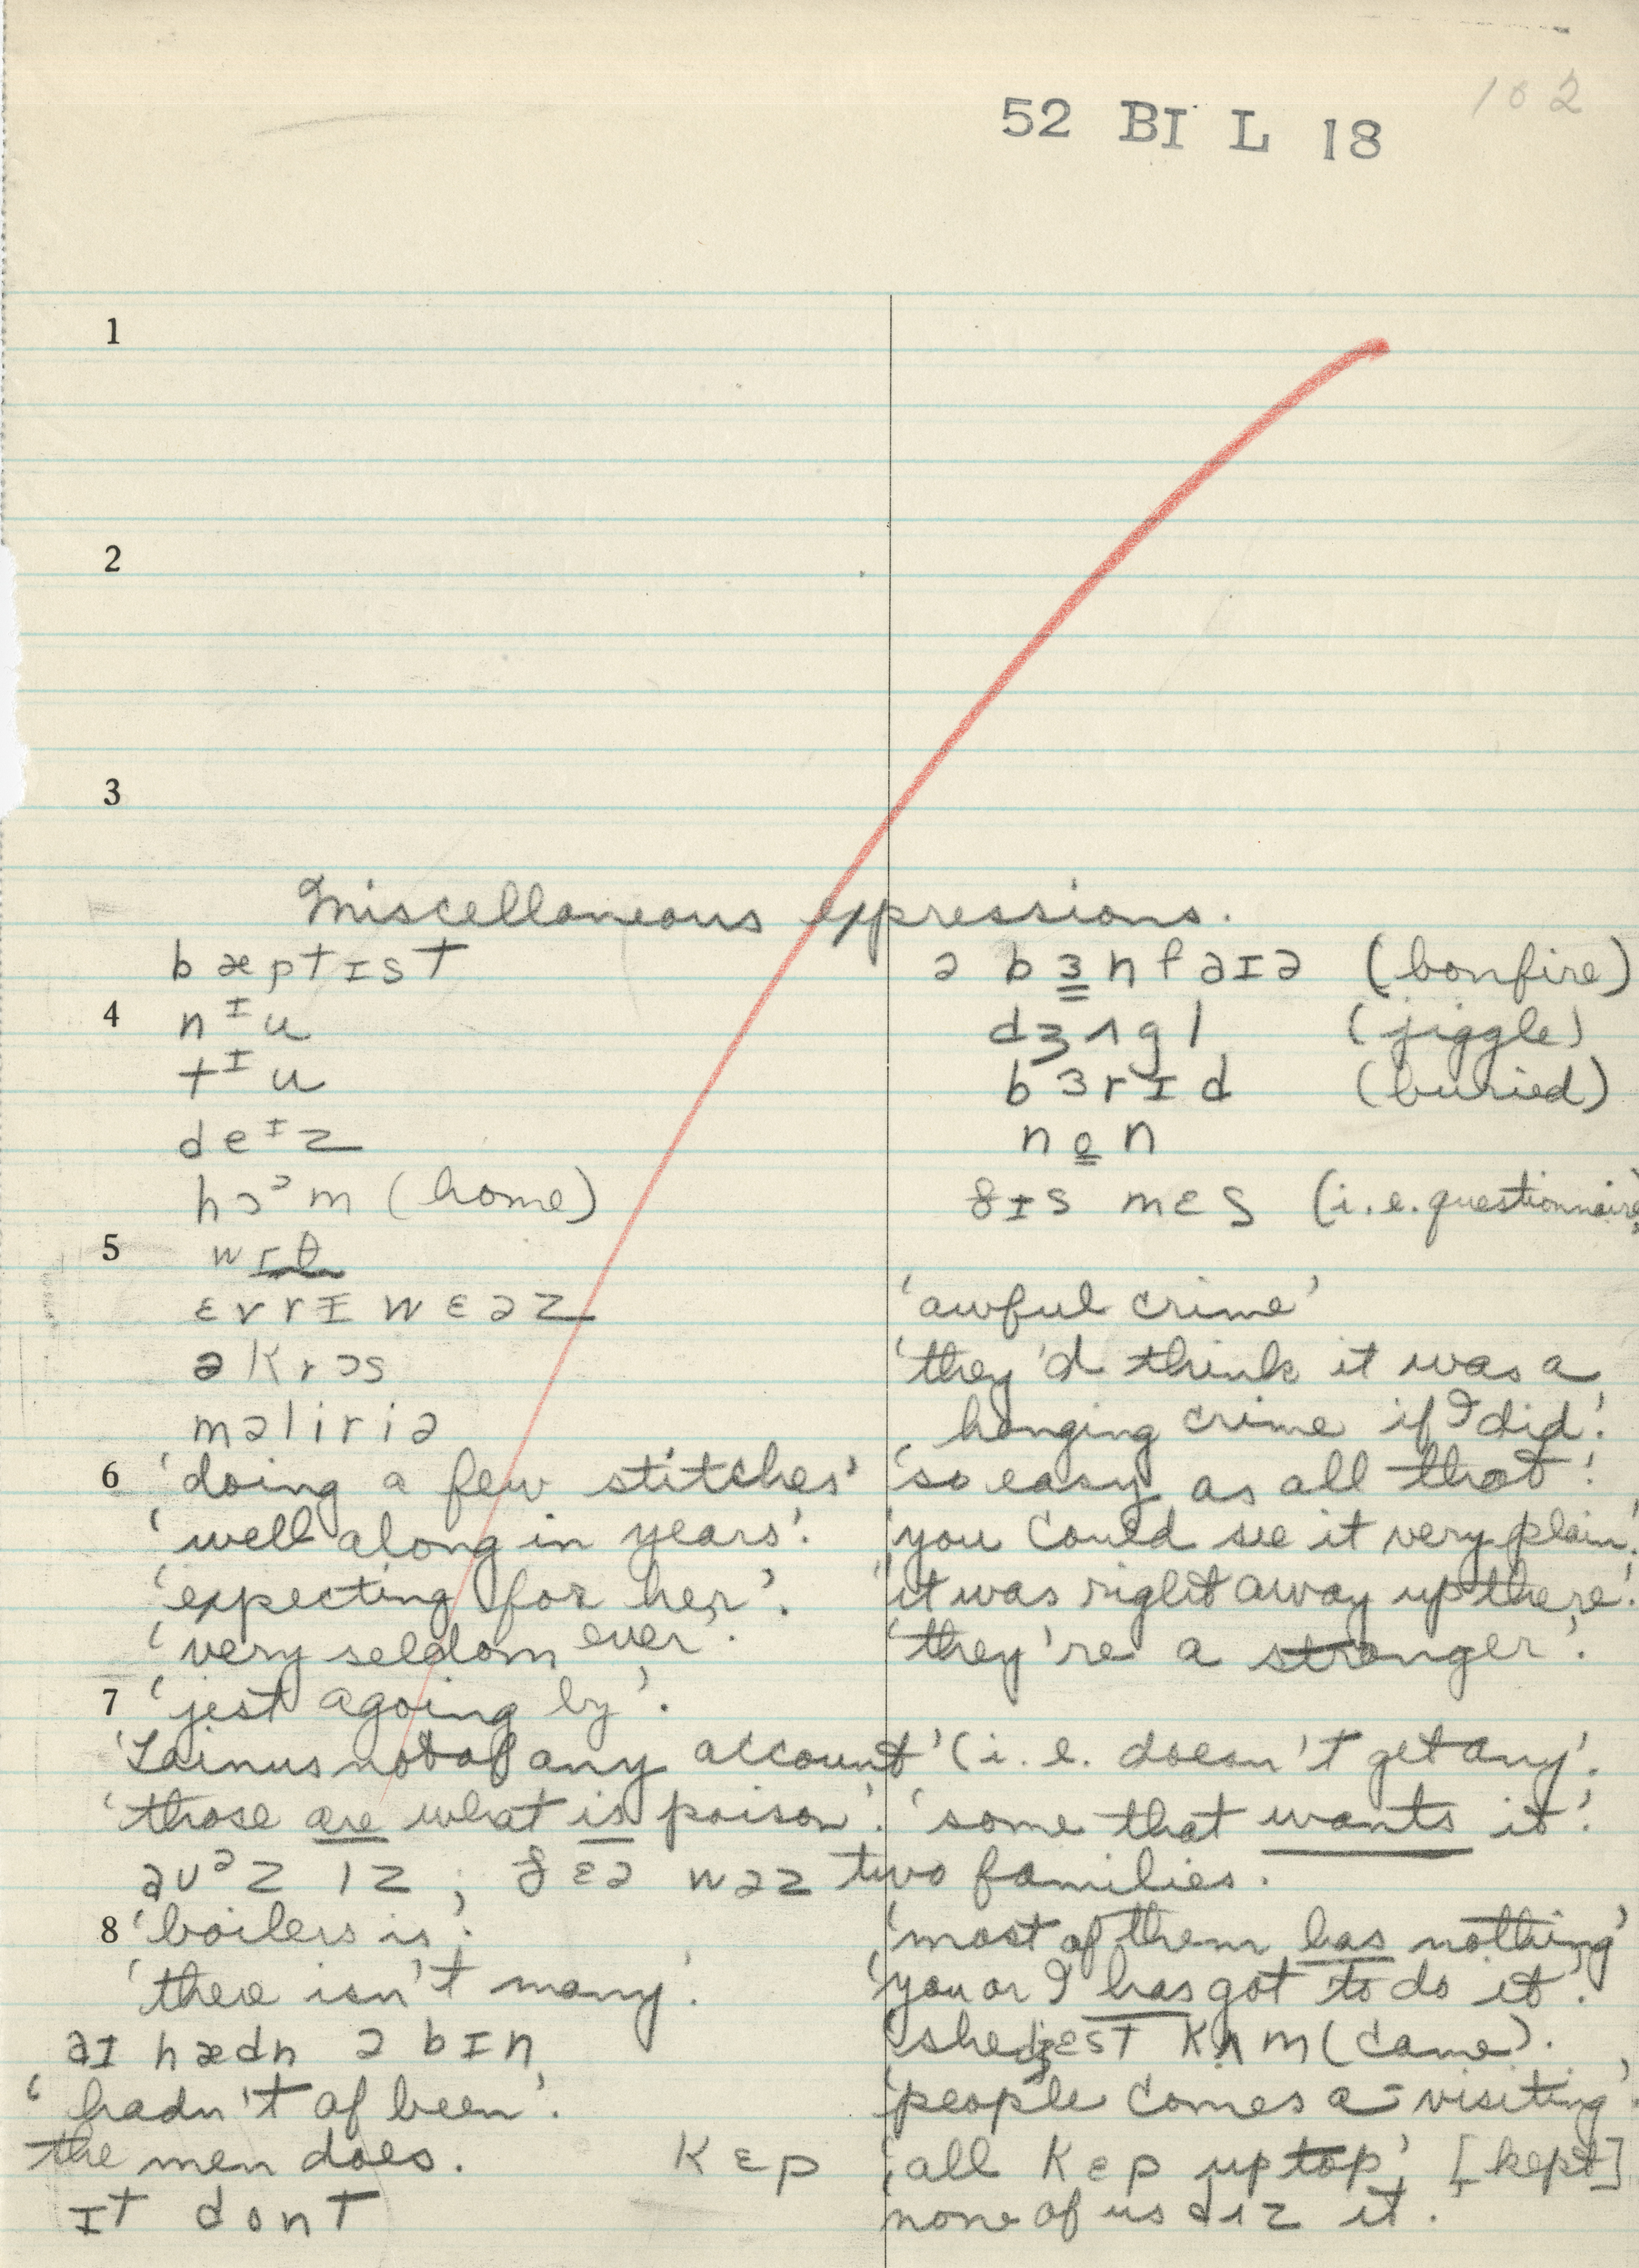 102
52 BI L 18
1
2
3
Miscellaneous expressions.
bæptɪst
ə bɜnfaɪə (bonfire)
4 nᶦu
dʒʌgl (jiggle)
tᶦu
bɜrɪd (buried)
deᶦz
non
hɔᵓm (home)
ðɪs mɛs (i.e. questionnaire)
5 wɪθ
ɛvrɪwɛəz
'awful crime'
əkrɔs
'they'd think it was a
məliriə
hanging crime if I did'.
6 'doing a few stitches'
'so easy as all that'.
'well along in years'.
'you could see it very plain'.
'expecting for her'.
'it was right away up there'.
'very seldom ever'.
'they're a stranger'.
7 'jest agoing by'.
not of any account' (i.e. doesn't get any'.
'those are what is poison'. 'some that wants it'.
auᵊz ɪz ; ðɛə wəz two families.
8 'boilers is'.
'most of them has nothing'
'there isn't many'.
'you or I has got to do it'.
aɪ hædn ə bɪn
'she dʒɛst kʌm (came).
'hadn't of been'.
'people comes a-visiting'.
the men does.
kɛp 'all kɛp up top', [kept]
ɪt dont
none of us dɪz it'.